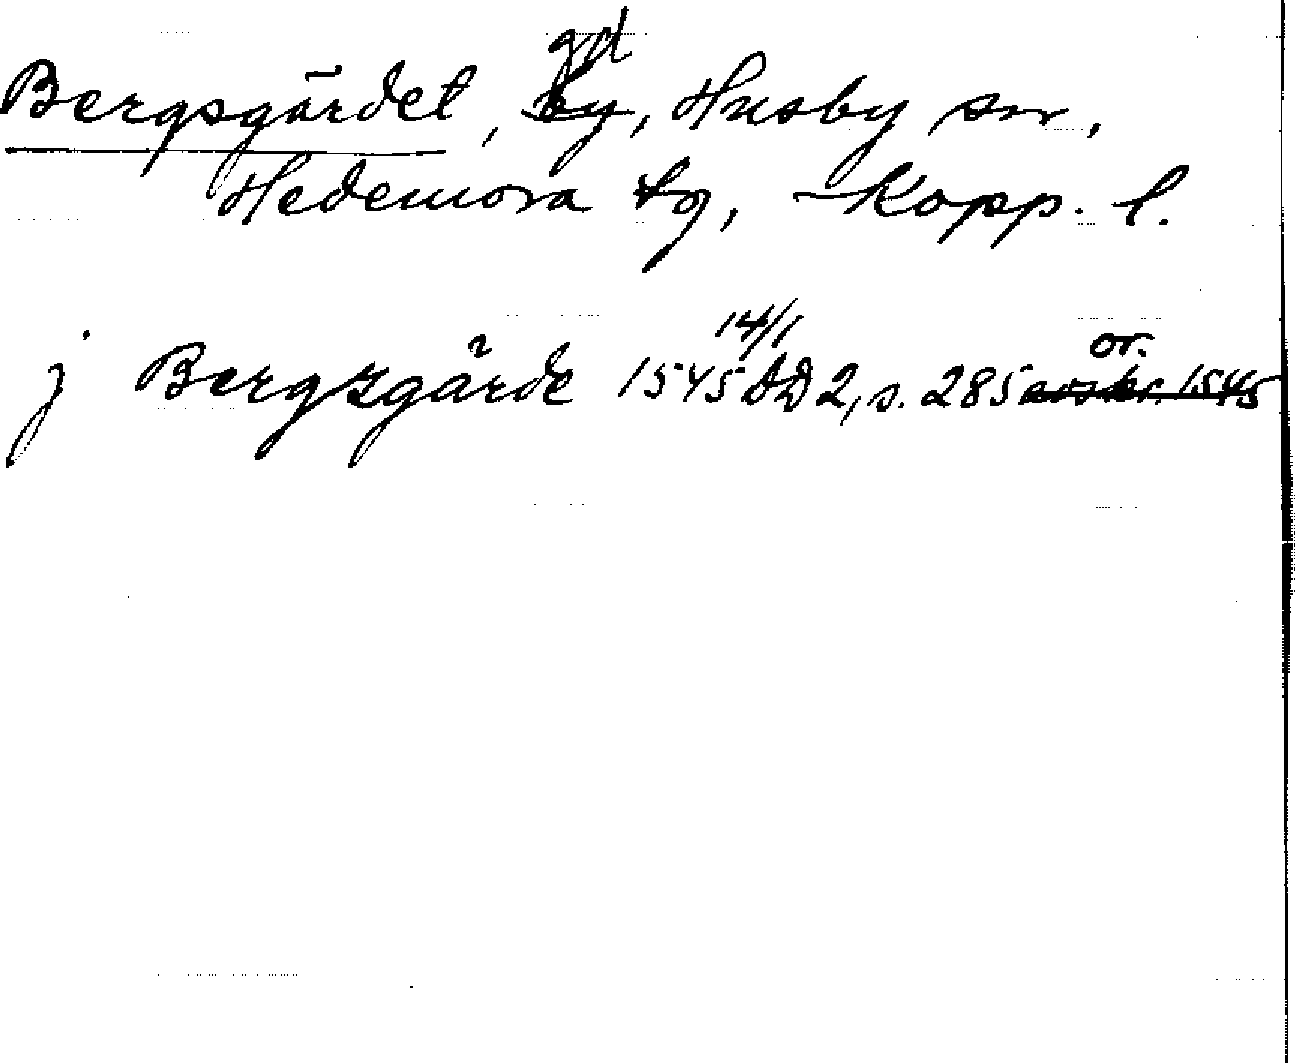 gd
Bergsgärdet, by, Husby sn,
Hedemora tg, Kopp. l.
14/1 or.
j Bergzgärde 1545 DD 2, s. 285 avskr. 1545